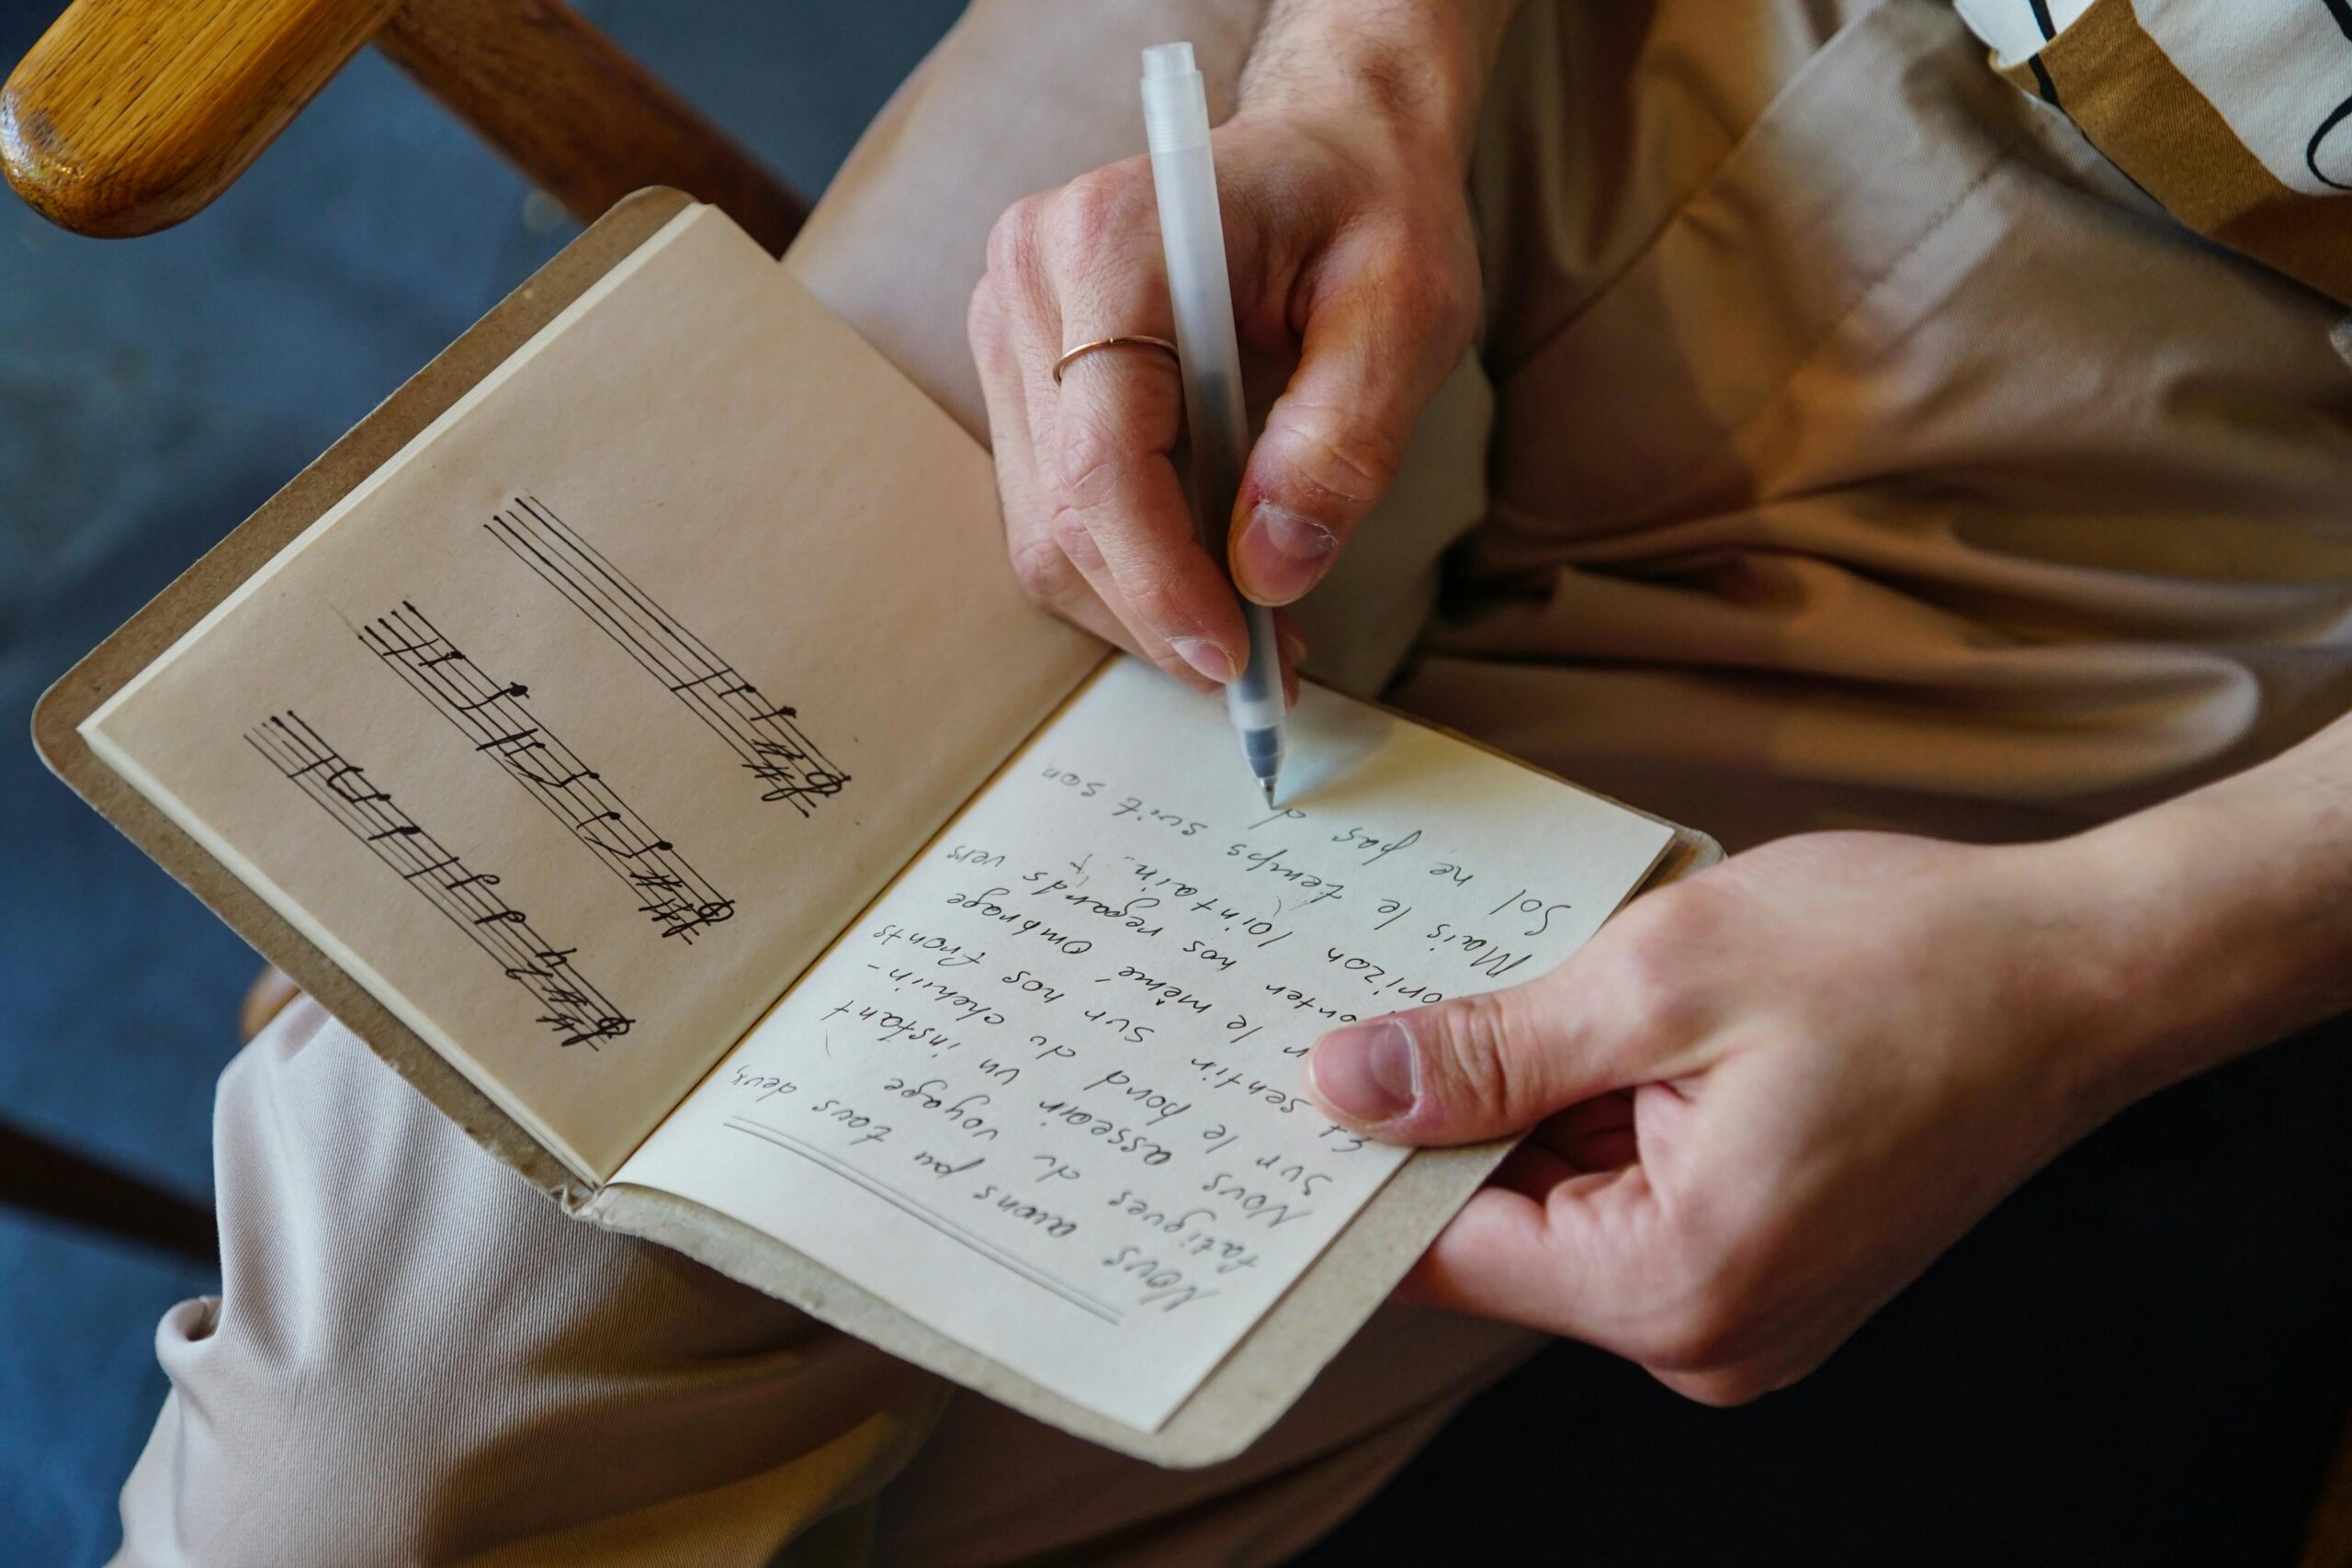 Nous avons pu tous deux,
fatigues du voyage
Nous asseoir un instant
sur le bord du chemin-
Et sentir sur nos fronts
le même ombrage
nos regards vers
orizon lointain..
Mais le temps suit son
Sol ne pas d